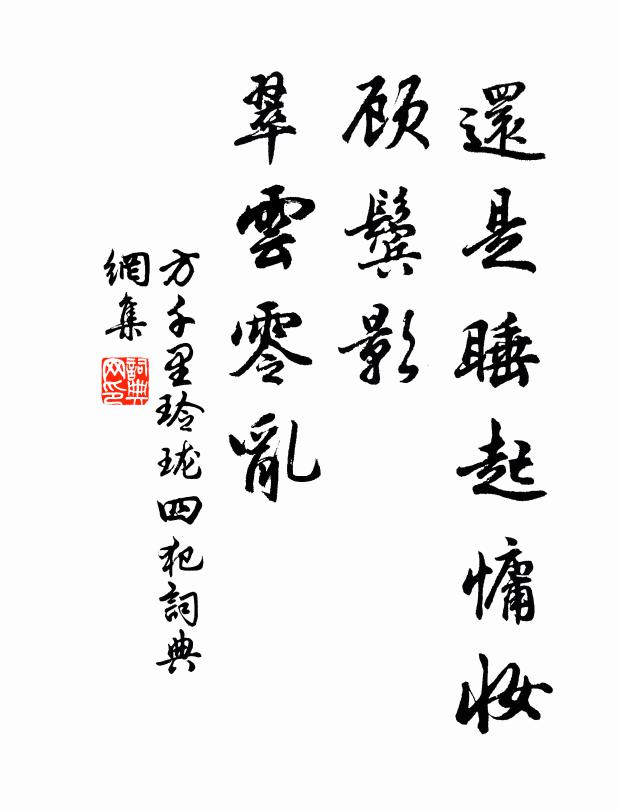 還是睡起慵妆
顾鬓影
翠雲零亂
方千里玲珑四犯詞典
網集
詞典
网印